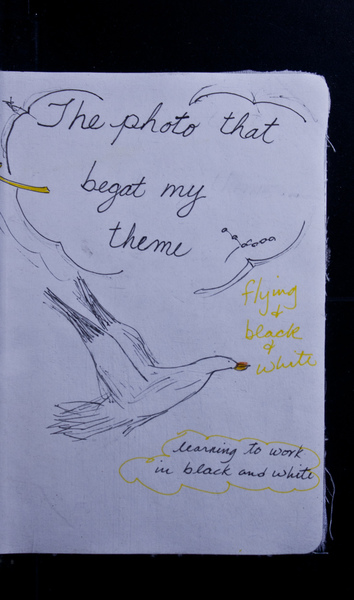 The photo that
begat my
theme
flying
&
black
&
white
learning to work
in black and white